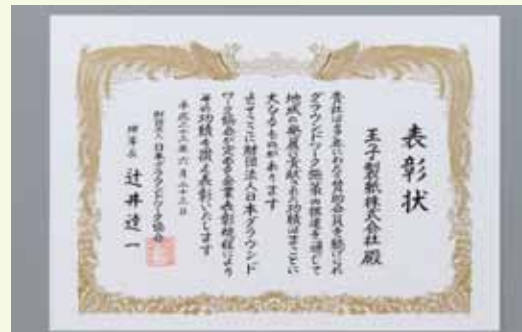 表彰状
王子製紙株式会社 殿
貴社は多年にわたり賛助会員を続けられ
グラウンドワーク施策の推進を通して
地域の発展に貢献された功績はまことに
大なるものがあります
よってここに財団法人日本グラウンド
ワーク協会が定める企業表彰規程により
その功績を讃え表彰いたします
平成二十三年六月二十三日
財団法人 日本グラウンドワーク協会
理事長 辻井達一